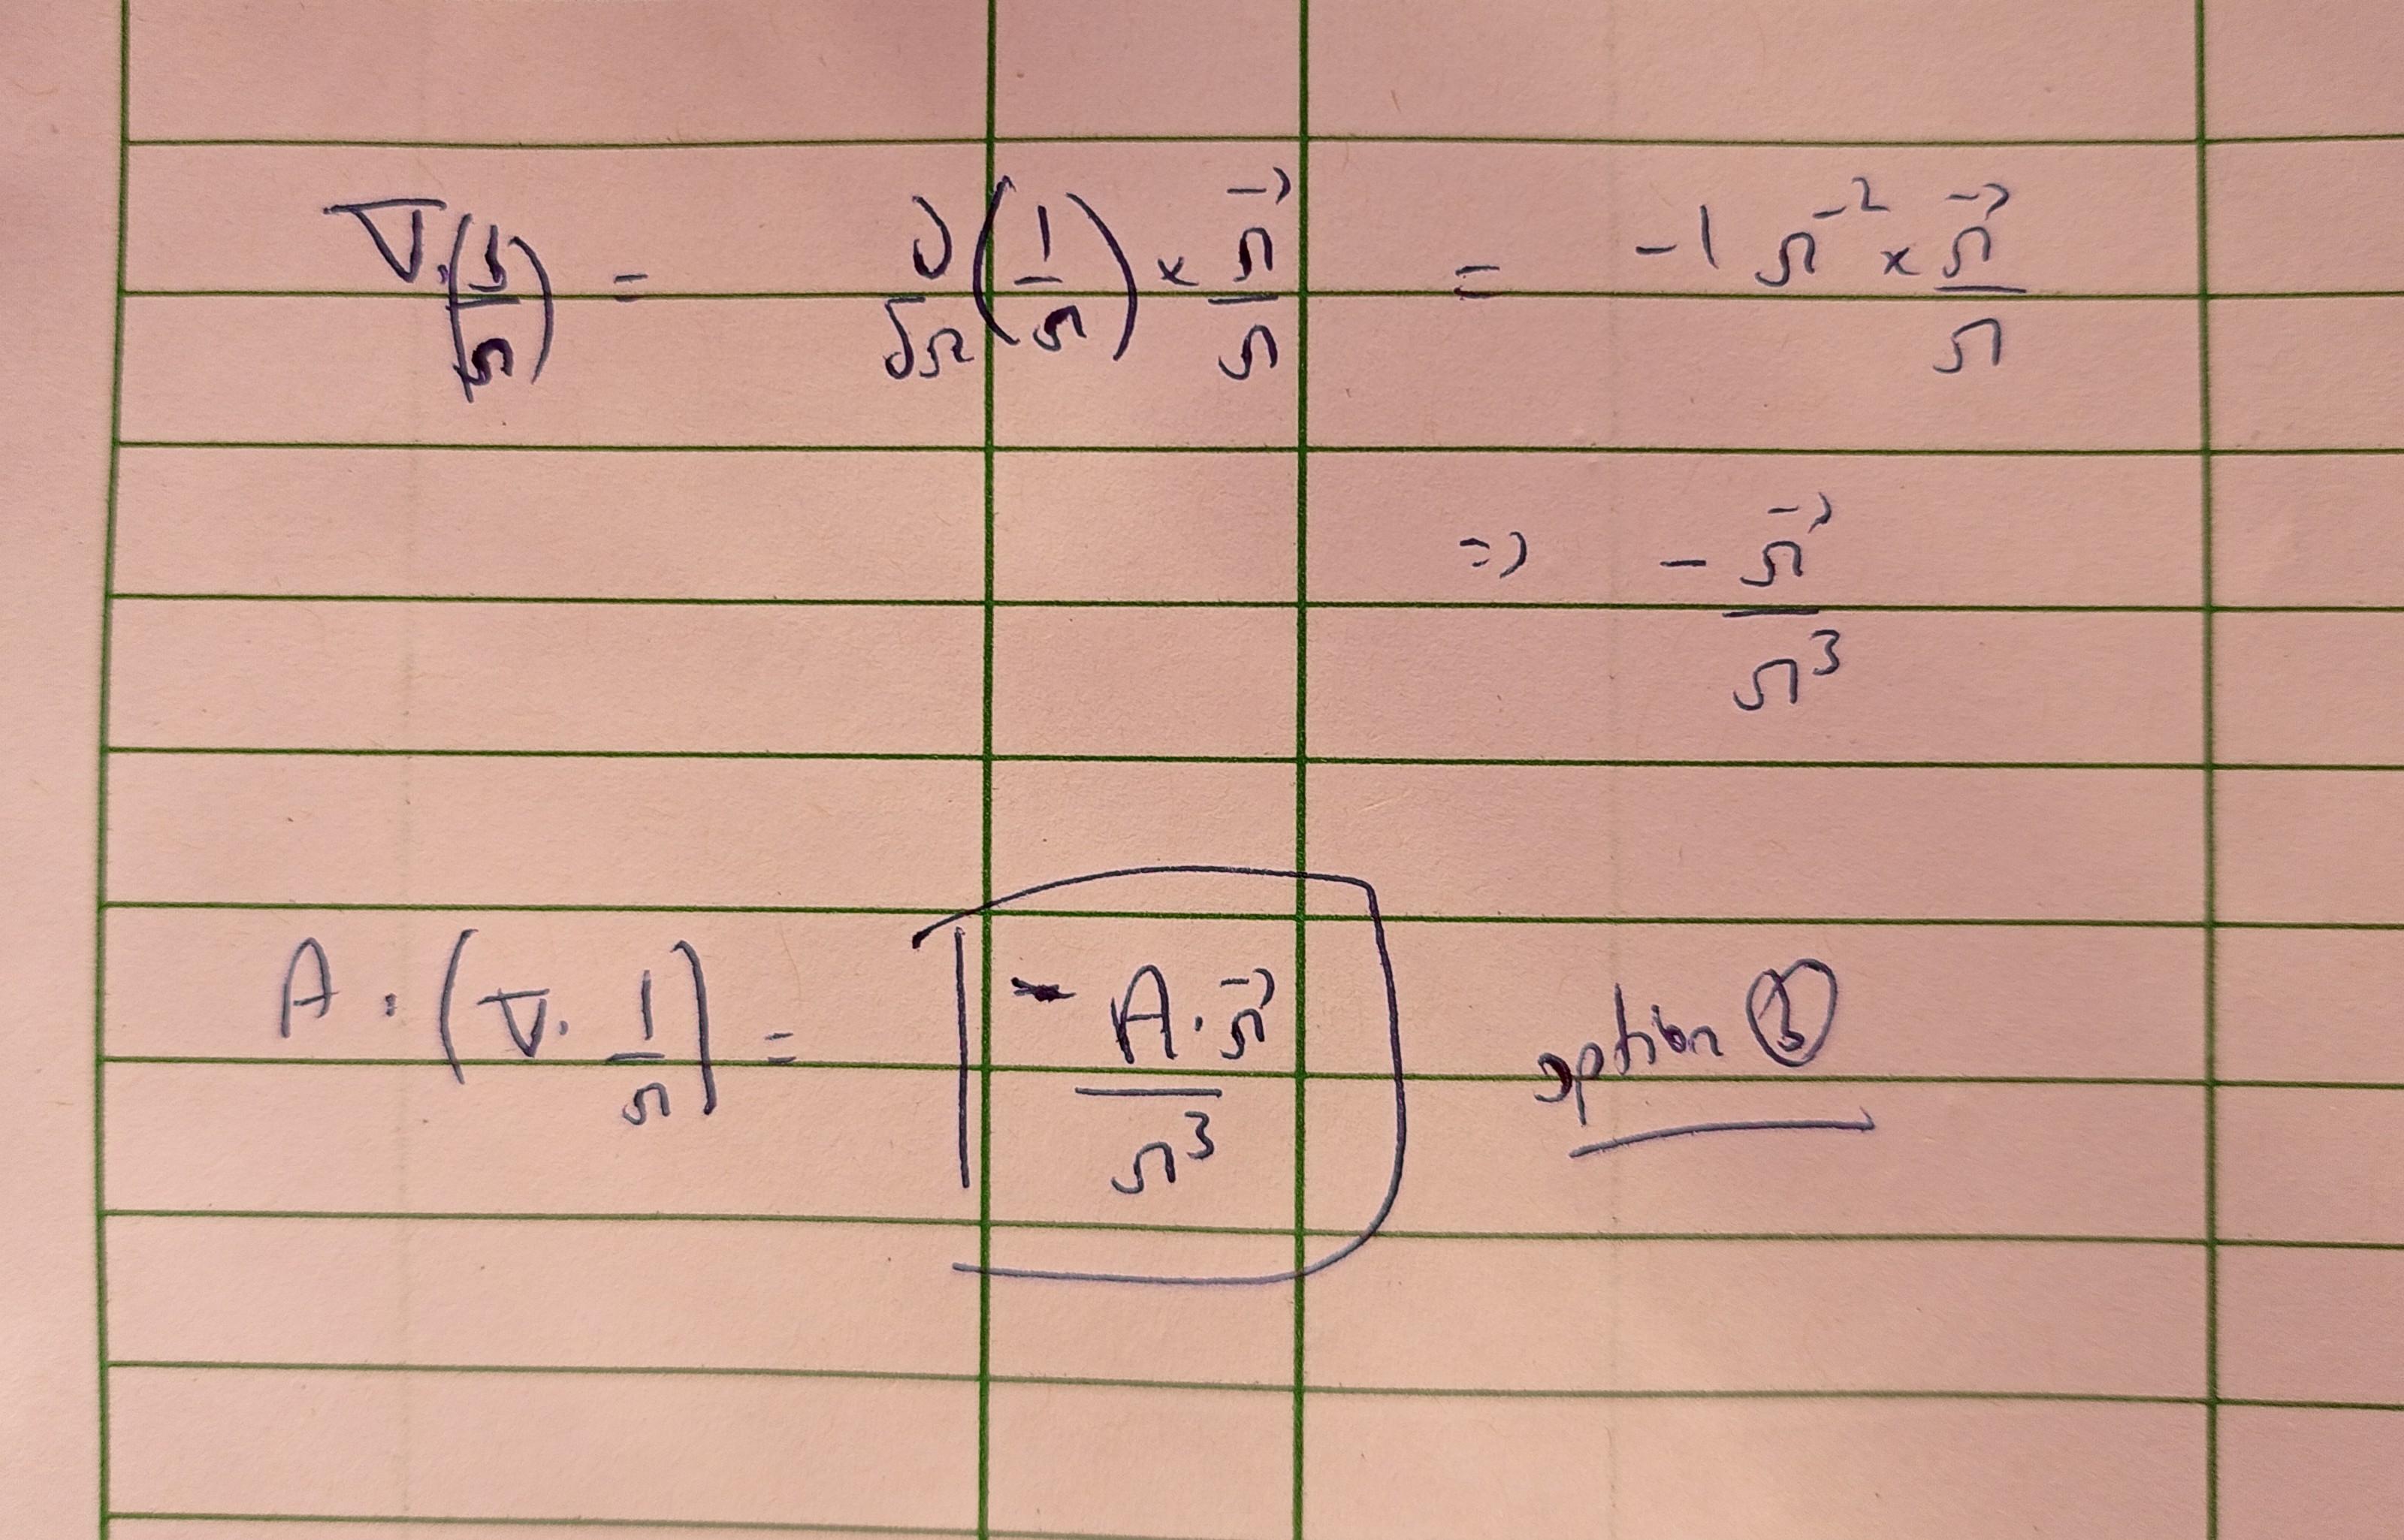 ∇.(1/r) = ∂/∂r (1/r) × r⃗/r = -1 r⁻² × r⃗/r
=> - r⃗/r³
A . (∇. 1/r) = - A.r⃗/r³ option ③